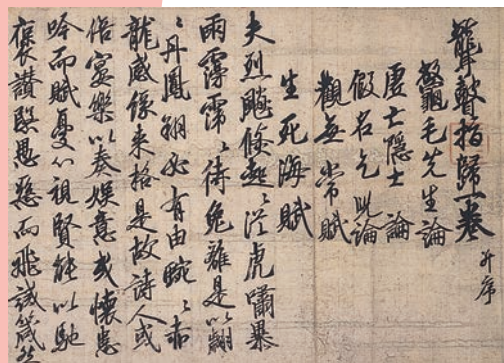 聾瞽指歸一卷 并序
鼈毛先生論
虛士隱士論
假名乞兒論
觀無常賦
生死海賦
夫烈飈倏起〻從虎嘯暴
雨霶霈〻待兔離是以翩
〻丹鳳翔必有由蜿〻赤
龍感緣來格是故詩人或
宴樂以奏娛意或懷患
吟而賦憂心視賢能以馳
褒讚愍愚惡而飛誡箴